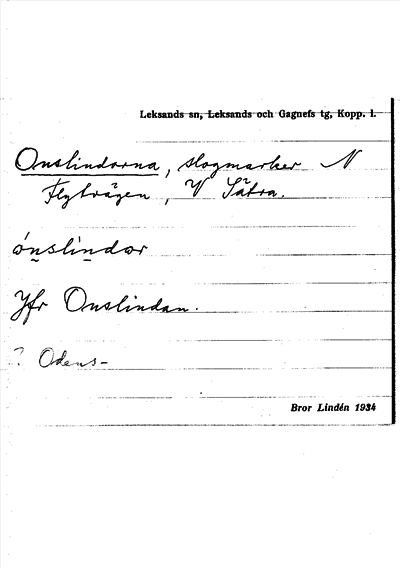 Leksands sn, Leksands och Gagnefs tg, Kopp. l.
Onslindorna, slogmarker N
Flyträgen, V Sätra.
ónslindor
Jfr Onslindan.
? Odens-
Bror Lindén 1934